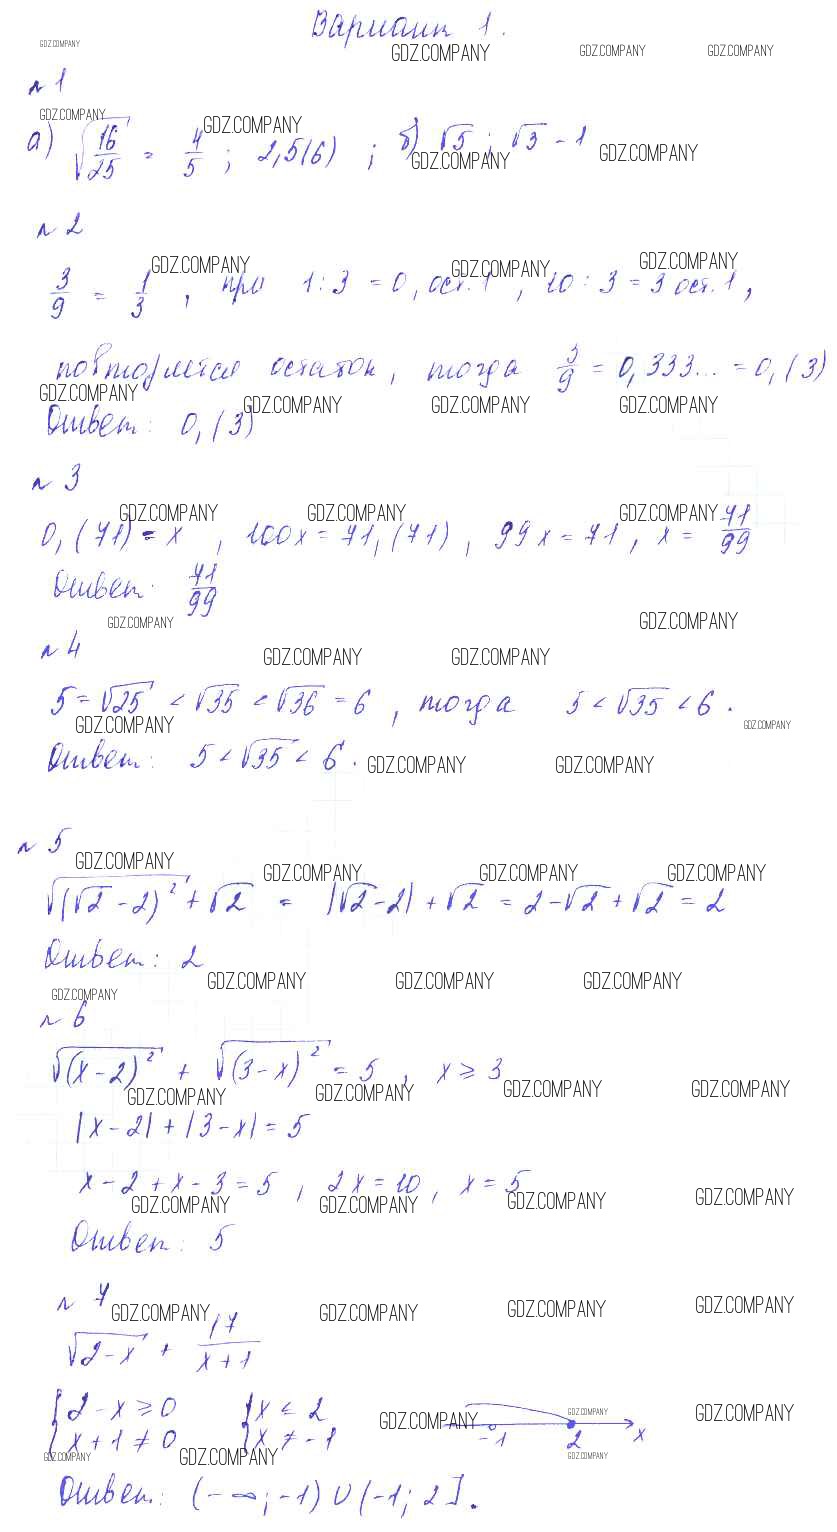 Вариант 1.
GDZ.COMPANY GDZ.COMPANY GDZ.COMPANY GDZ.COMPANY
№1
GDZ.COMPANY GDZ.COMPANY
а) √(16/25) = 4/5 ; 2,5(6) ; б) √5 ; √3 - 1
GDZ.COMPANY GDZ.COMPANY
№2
GDZ.COMPANY GDZ.COMPANY GDZ.COMPANY
3/9 = 1/3 , при 1 : 3 = 0, ост. 1 , 10 : 3 = 3 ост. 1 ,
повторяется остаток, тогда 3/9 = 0,333... = 0,(3)
GDZ.COMPANY GDZ.COMPANY GDZ.COMPANY GDZ.COMPANY
Ответ: 0,(3)
№3
GDZ.COMPANY GDZ.COMPANY GDZ.COMPANY
0,(71) = x , 100x = 71,(71) , 99x = 71 , x = 71/99
Ответ: 71/99
GDZ.COMPANY GDZ.COMPANY
№4
GDZ.COMPANY GDZ.COMPANY
5 = √25 < √35 < √36 = 6 , тогда 5 < √35 < 6 .
GDZ.COMPANY GDZ.COMPANY
Ответ: 5 < √35 < 6 .
GDZ.COMPANY GDZ.COMPANY
№5
GDZ.COMPANY GDZ.COMPANY GDZ.COMPANY GDZ.COMPANY
√((√2 - 2)²) + √2 = |√2 - 2| + √2 = 2 - √2 + √2 = 2
Ответ: 2
GDZ.COMPANY GDZ.COMPANY GDZ.COMPANY GDZ.COMPANY
№6
√((x - 2)²) + √((3 - x)²) = 5 , x ⩾ 3
GDZ.COMPANY GDZ.COMPANY GDZ.COMPANY GDZ.COMPANY
|x - 2| + |3 - x| = 5
x - 2 + x - 3 = 5 , 2x = 10 , x = 5
GDZ.COMPANY GDZ.COMPANY GDZ.COMPANY GDZ.COMPANY
Ответ: 5
№7
GDZ.COMPANY GDZ.COMPANY GDZ.COMPANY GDZ.COMPANY
√(2 - x) + 17/(x + 1)
{2 - x ⩾ 0 {x ⩽ 2
GDZ.COMPANY GDZ.COMPANY GDZ.COMPANY
{x + 1 ≠ 0 {x ≠ -1 -1 2 x
GDZ.COMPANY GDZ.COMPANY GDZ.COMPANY
Ответ: (-∞; -1) ∪ (-1; 2].